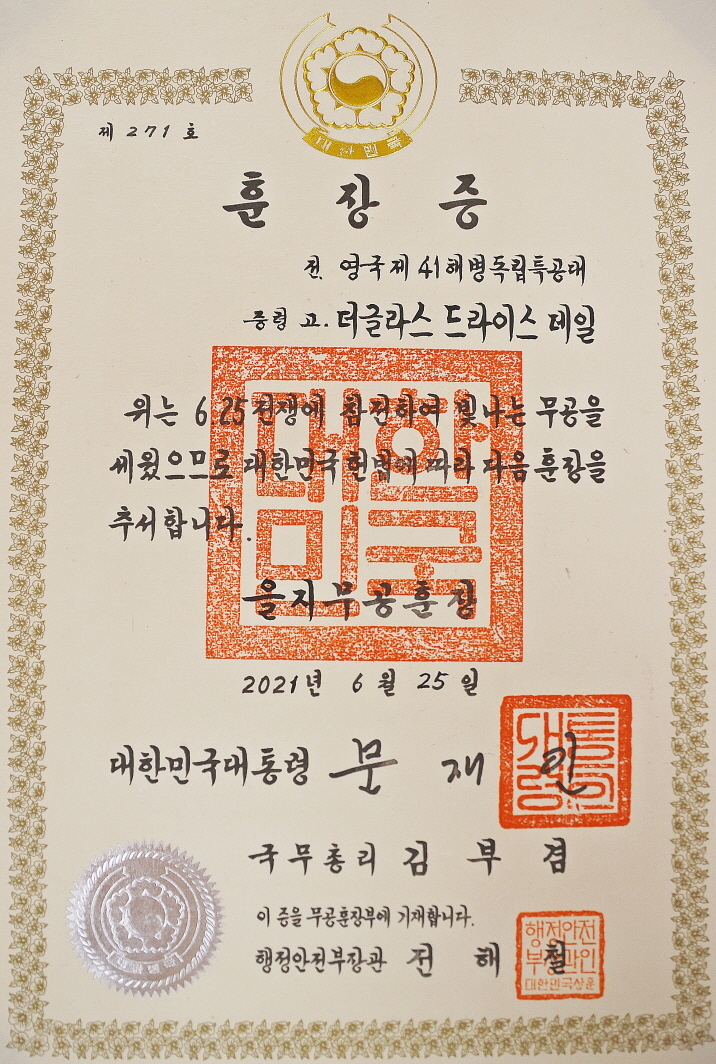 대한민국
제 271 호
훈 장 증
전. 영국제41해병독립특공대
중령 고. 더글라스 드라이스데일
위는 6.25전쟁에 참전하여 빛나는 무공을
세웠으므로 대한민국헌법에 따라 다음 훈장을
추서합니다.
대한민국
을지무공훈장
2021년 6월 25일
대한민국대통령 문 재 인
국무총리 김 부 겸
이 증을 무공훈장부에 기재합니다.
행정안전부장관 전 해 철
행정안전
부장관인
대한민국상훈
대한민국